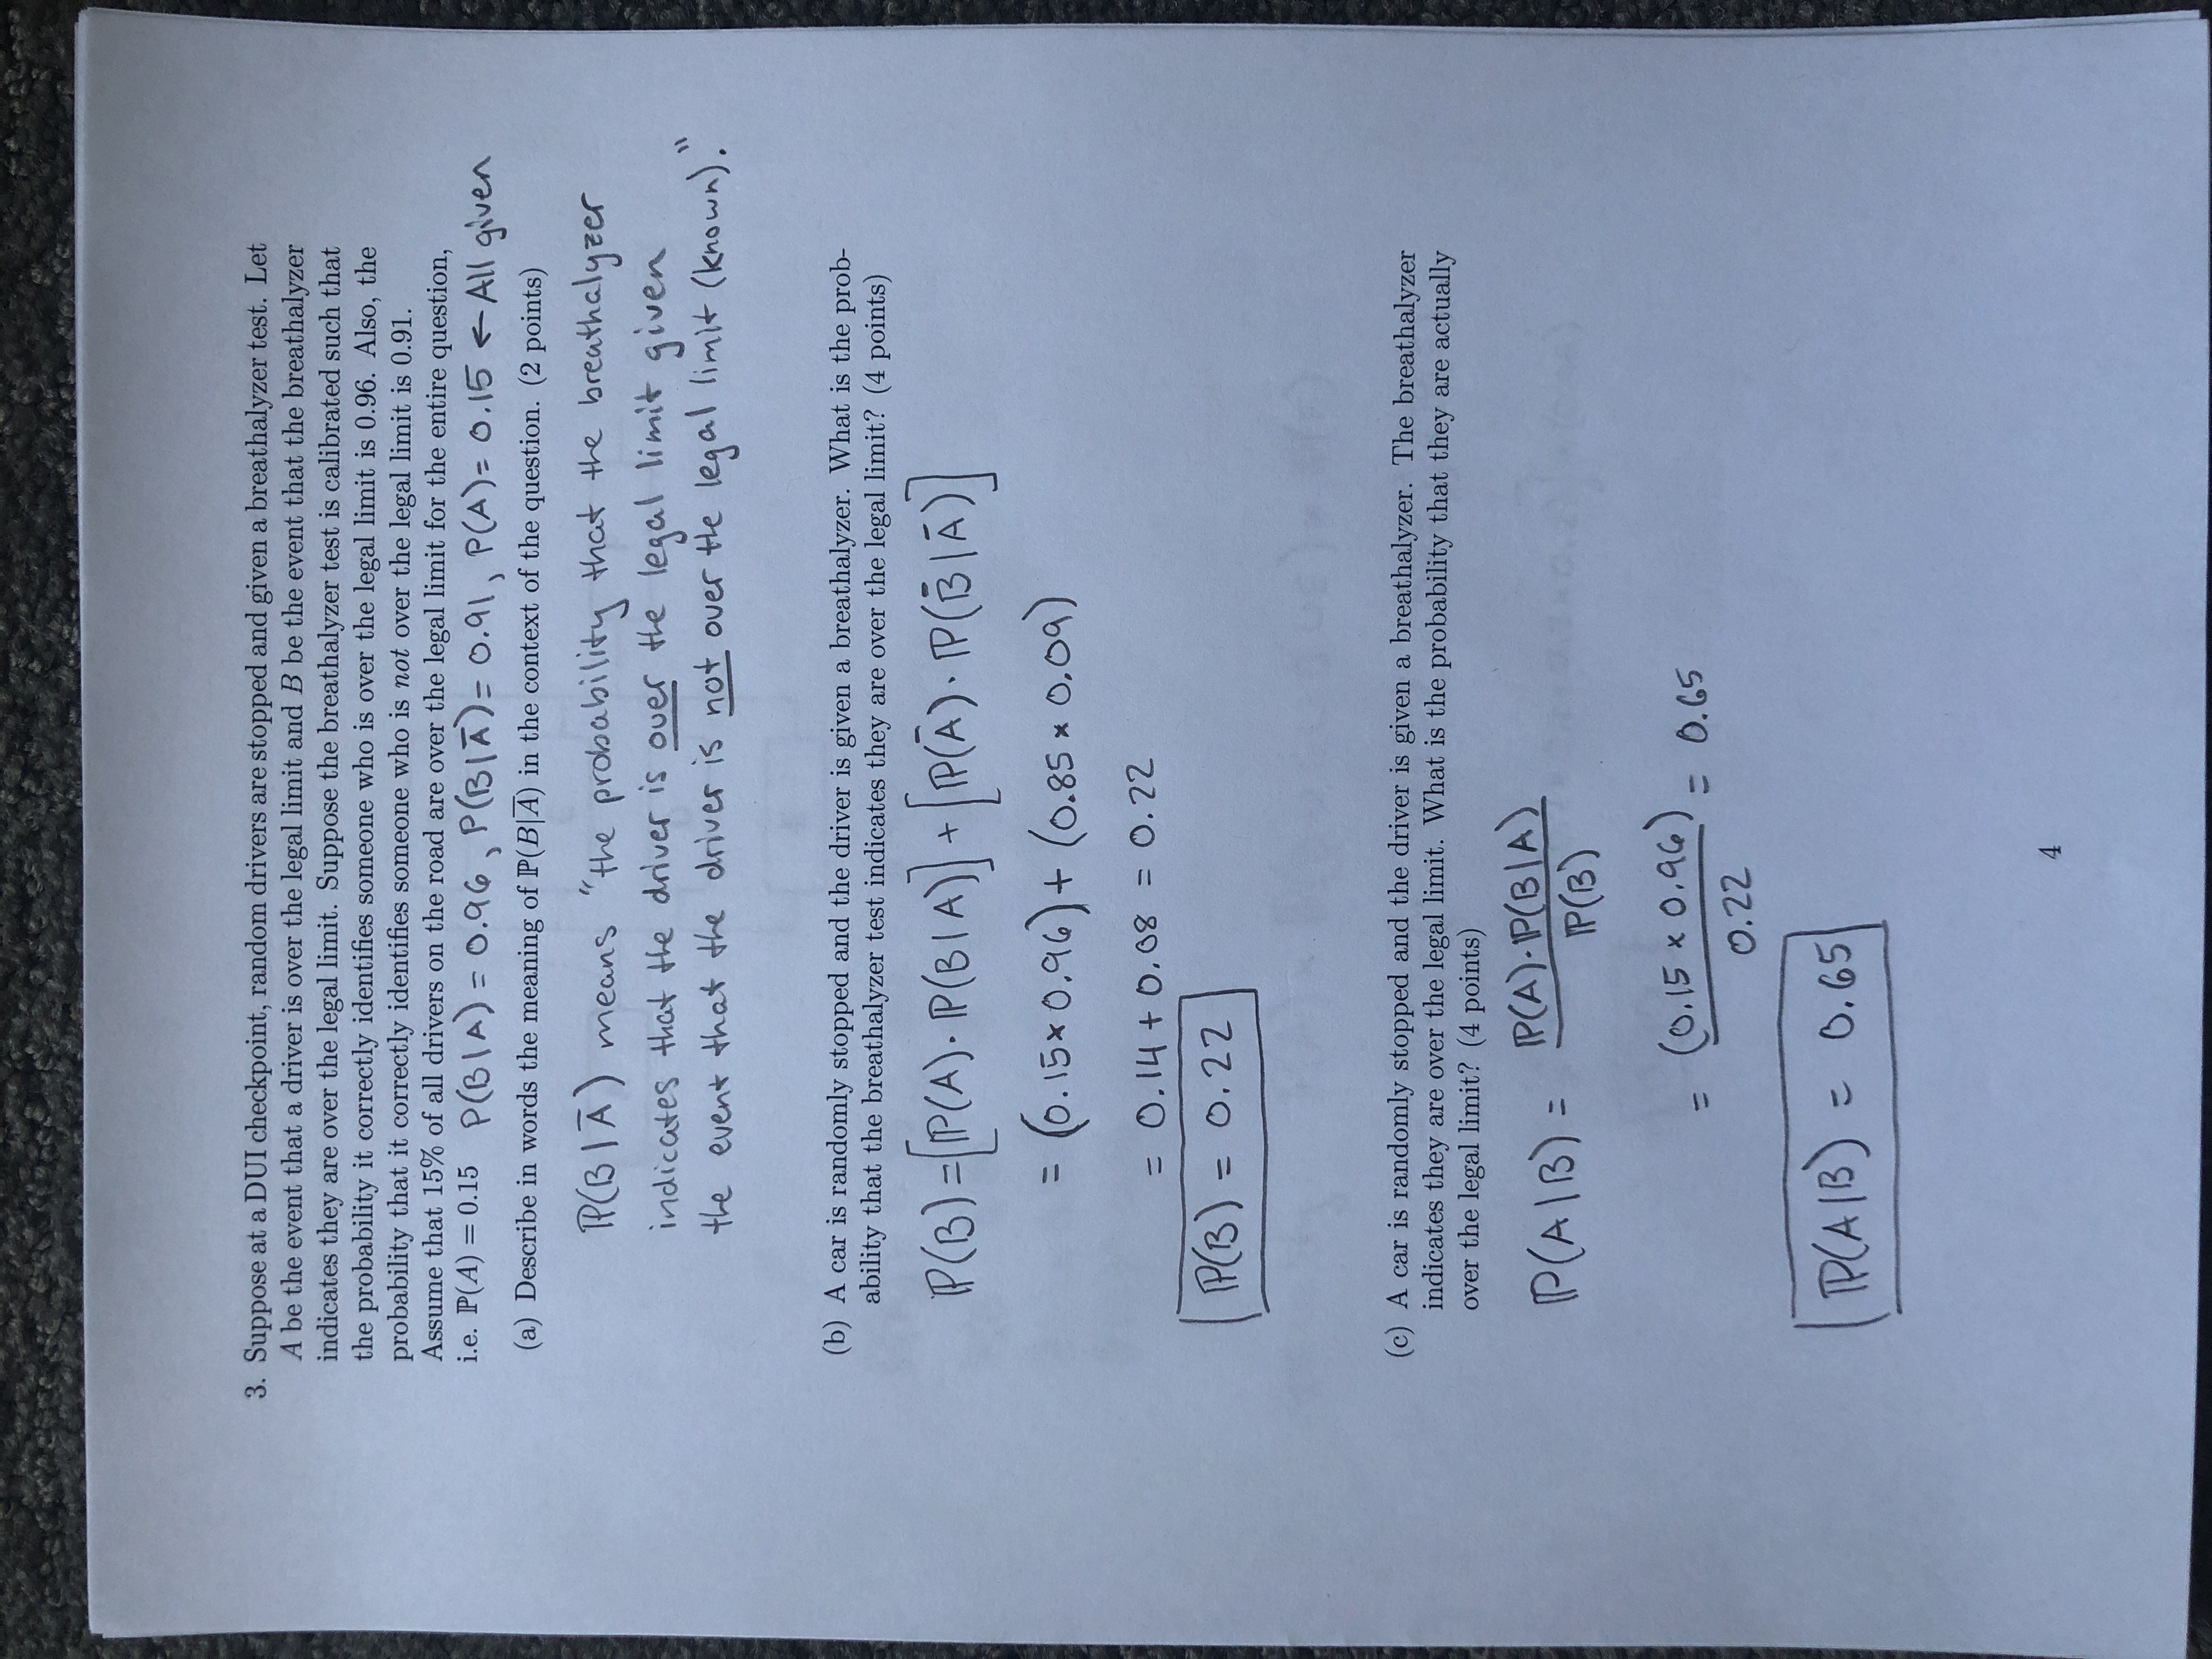 3. Suppose at a DUI checkpoint, random drivers are stopped and given a breathalyzer test. Let
A be the event that a driver is over the legal limit and B be the event that the breathalyzer
indicates they are over the legal limit. Suppose the breathalyzer test is calibrated such that
the probability it correctly identifies someone who is over the legal limit is 0.96. Also, the
probability that it correctly identifies someone who is not over the legal limit is 0.91.
Assume that 15% of all drivers on the road are over the legal limit for the entire question,
i.e. ℙ(A) = 0.15 P(B|A) = 0.96, P(B|Ā) = 0.91, P(A) = 0.15 ← All given
(a) Describe in words the meaning of ℙ(B|Ā) in the context of the question. (2 points)
ℙ(B|Ā) means "the probability that the breathalyzer
indicates that the driver is over the legal limit given
the event that the driver is not over the legal limit (known)."
(b) A car is randomly stopped and the driver is given a breathalyzer. What is the prob-
ability that the breathalyzer test indicates they are over the legal limit? (4 points)
ℙ(B) = [ℙ(A)·ℙ(B|A)] + [ℙ(Ā)·ℙ(B̄|Ā)]
= (0.15×0.96) + (0.85×0.09)
= 0.14 + 0.08 = 0.22
ℙ(B) = 0.22
(c) A car is randomly stopped and the driver is given a breathalyzer. The breathalyzer
indicates they are over the legal limit. What is the probability that they are actually
over the legal limit? (4 points)
ℙ(A|B) = ℙ(A)·ℙ(B|A)
ℙ(B)
= (0.15 × 0.96) = 0.65
0.22
ℙ(A|B) = 0.65
4